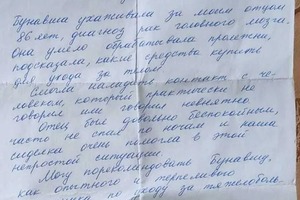 Бунавша ухаживала за моим отцом
86 лет, диагноз рак головного мозга.
Она умело обрабатывала пролежни,
подсказала, какие средства купить
для ухода за телом.
Смогла наладить контакт с че-
ловеком, который практически не
говорил или говорил невнятно.
Отец был довольно беспокойным,
часто не спал по ночам и наша
сиделка очень помогла в этой
непростой ситуации.
Могу порекомендовать Бунавшу,
как опытного и терпеливого
по уходу за тяжелоболь-